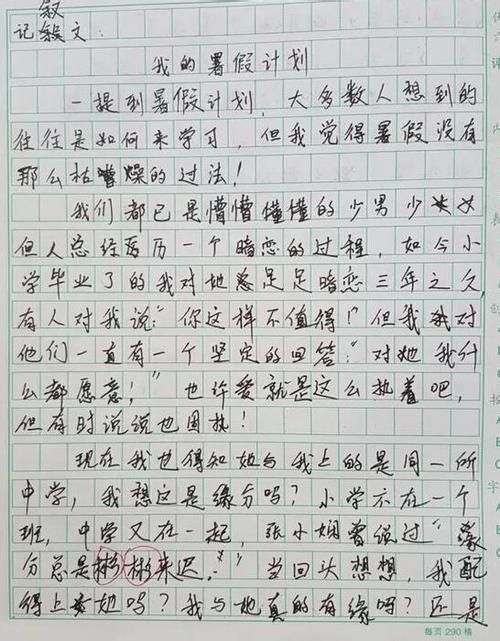 叙
记叙文:
我的暑假计划
一提到暑假计划,大多数人想到的
往往是如何来学习,但我觉得暑假没有
那么枯嘈燥的过法!
我们都已是懵懵懂懂的少男少女
但人总经历一个暗恋的过程,如今小
学毕业了的我对她总足足暗恋三年之久,
有人对我说:"你这样不值得!"但我对
他们一直有一个坚定的回答:"对她我什
么都愿意!"也许爱就是这么执着吧,
但有时说说也固执!
现在我也得知她与我上的是同一所
中学,我想这是缘分吗?小学不在一个
班,中学又在一起,张小娴曾说过"缘
分总是彬彬来迟."当回头想想,我配
得上她吗?我与她真的有缘吗?还是
每页 290 格